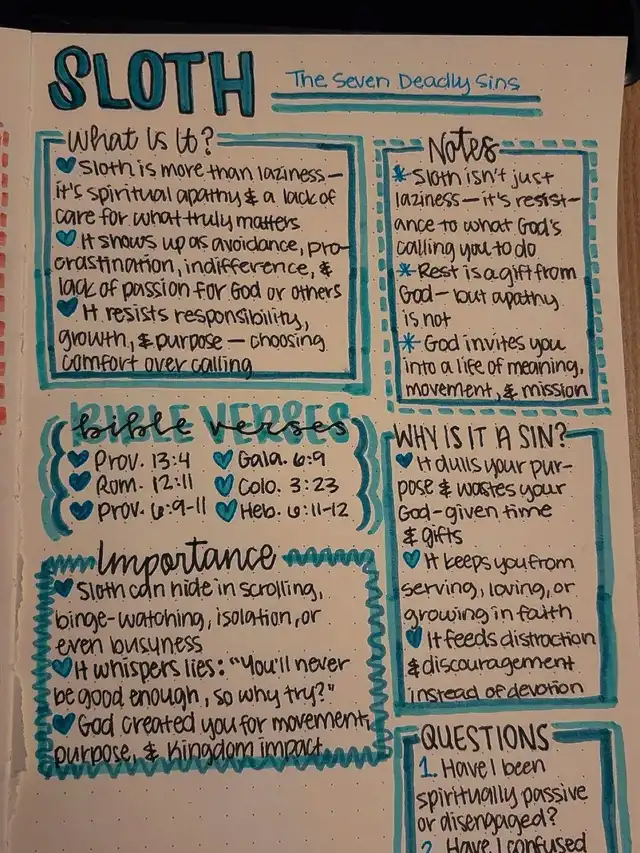 SLOTH
The Seven Deadly Sins
What Is It?
Sloth is more than laziness—
it's spiritual apathy & a lack of
care for what truly matters
It shows up as avoidance, pro-
crastination, indifference, &
lack of passion for God or others
It resists responsibility,
growth, & purpose — choosing
comfort over calling
Notes
*Sloth isn't just
laziness — it's resist-
ance to what God's
calling you to do
*Rest is a gift from
God — but apathy
is not
*God invites you
into a life of meaning,
movement, & mission
BIBLE VERSES
bible verses
Prov. 13:4
Gala. 6:9
Rom. 12:11
Colo. 3:23
Prov. 6:9-11
Heb. 6:11-12
WHY IS IT A SIN?
It dulls your pur-
pose & wastes your
God-given time
& gifts
It keeps you from
serving, loving, or
growing in faith
It feeds distraction
& discouragement
instead of devotion
Importance
Sloth can hide in scrolling,
binge-watching, isolation, or
even busyness
It whispers lies: "You'll never
be good enough, so why try?"
God created you for movement,
purpose, & Kingdom impact
QUESTIONS
1. Have I been
spiritually passive
or disengaged?
2. Have I confused